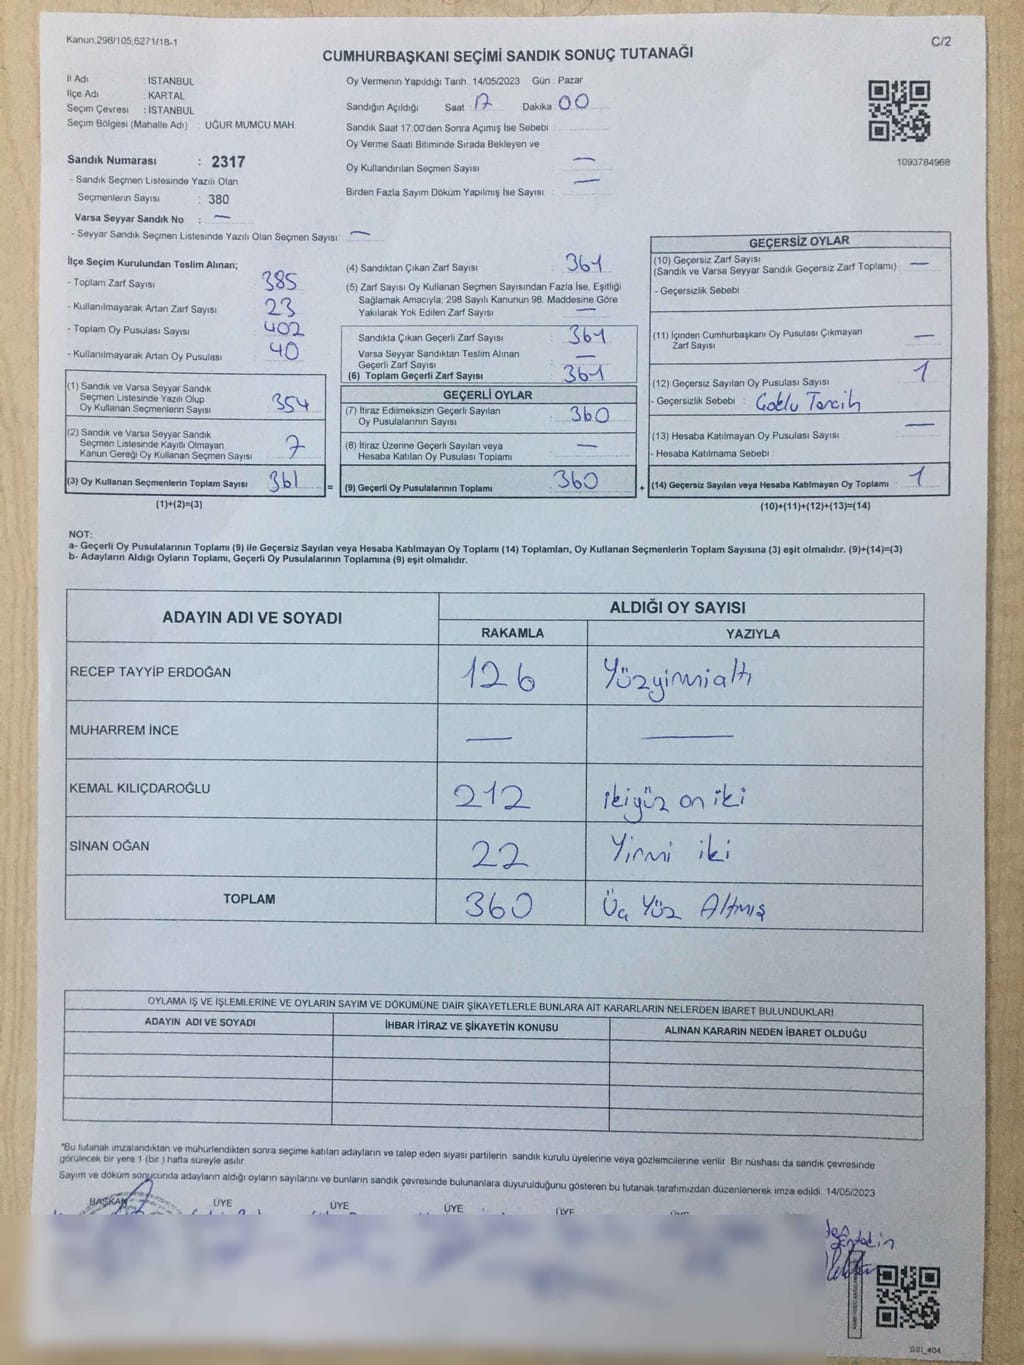 Kanun:298/105,6271/18-1
C/2
CUMHURBAŞKANI SEÇİMİ SANDIK SONUÇ TUTANAĞI
İl Adı : İSTANBUL
İlçe Adı : KARTAL
Seçim Çevresi : İSTANBUL
Seçim Bölgesi (Mahalle Adı) : UĞUR MUMCU MAH.
Sandık Numarası : 2317
- Sandık Seçmen Listesinde Yazılı Olan
Seçmenlerin Sayısı : 380
Varsa Seyyar Sandık No : —
- Seyyar Sandık Seçmen Listesinde Yazılı Olan Seçmen Sayısı: —
Oy Vermenin Yapıldığı Tarih :14/05/2023 Gün : Pazar
Sandığın Açıldığı Saat : 17 Dakika 00
Sandık Saat 17:00'den Sonra Açımış İse Sebebi :
Oy Verme Saati Bitiminde Sırada Bekleyen ve
Oy Kullandırılan Seçmen Sayısı : —
Birden Fazla Sayım Döküm Yapılmış İse Sayısı : —
1093784968
İlçe Seçim Kurulundan Teslim Alınan;
- Toplam Zarf Sayısı 385
- Kullanılmayarak Artan Zarf Sayısı 23
- Toplam Oy Pusulası Sayısı 402
- Kullanılmayarak Artan Oy Pusulası 40
(1) Sandık ve Varsa Seyyar Sandık
Seçmen Listesinde Yazılı Olup
Oy Kullanan Seçmenlerin Sayısı 354
(2) Sandık ve Varsa Seyyar Sandık
Seçmen Listesinde Kayıtlı Olmayan
Kanun Gereği Oy Kullanan Seçmen Sayısı 7
(3) Oy Kullanan Seçmenlerin Toplam Sayısı 361
(1)+(2)=(3)
(4) Sandıktan Çıkan Zarf Sayısı 361
(5) Zarf Sayısı Oy Kullanan Seçmen Sayısından Fazla İse, Eşitliği
Sağlamak Amacıyla; 298 Sayılı Kanunun 98. Maddesine Göre
Yakılarak Yok Edilen Zarf Sayısı —
Sandıkta Çıkan Geçerli Zarf Sayısı 361
Varsa Seyyar Sandıktan Teslim Alınan
Geçerli Zarf Sayısı —
(6) Toplam Geçerli Zarf Sayısı 361
GEÇERLİ OYLAR
(7) İtiraz Edilmeksizin Geçerli Sayılan
Oy Pusulalarının Sayısı 360
(8) İtiraz Üzerine Geçerli Sayılan veya
Hesaba Katılan Oy Pusulası Toplamı —
= (9) Geçerli Oy Pusulalarının Toplamı 360
GEÇERSİZ OYLAR
(10) Geçersiz Zarf Sayısı
(Sandık ve Varsa Seyyar Sandık Geçersiz Zarf Toplamı) —
- Geçersizlik Sebebi :
(11) İçinden Cumhurbaşkanı Oy Pusulası Çıkmayan
Zarf Sayısı —
(12) Geçersiz Sayılan Oy Pusulası Sayısı 1
- Geçersizlik Sebebi : Çoklu Tercih
(13) Hesaba Katılmayan Oy Pusulası Sayısı —
- Hesaba Katılmama Sebebi :
+ (14) Geçersiz Sayılan veya Hesaba Katılmayan Oy Toplamı : 1
(10)+(11)+(12)+(13)=(14)
NOT:
a- Geçerli Oy Pusulalarının Toplamı (9) ile Geçersiz Sayılan veya Hesaba Katılmayan Oy Toplamı (14) Toplamları, Oy Kullanan Seçmenlerin Toplam Sayısına (3) eşit olmalıdır. (9)+(14)=(3)
b- Adayların Aldığı Oyların Toplamı, Geçerli Oy Pusulalarının Toplamına (9) eşit olmalıdır.
ADAYIN ADI VE SOYADI ALDIĞI OY SAYISI
RAKAMLA YAZIYLA
RECEP TAYYİP ERDOĞAN 126 Yüzyirmialtı
MUHARREM İNCE — —
KEMAL KILIÇDAROĞLU 212 ikiyüz on iki
SİNAN OĞAN 22 Yirmi iki
TOPLAM 360 Üç Yüz Altmış
OYLAMA İŞ VE İŞLEMLERİNE VE OYLARIN SAYIM VE DÖKÜMÜNE DAİR ŞİKAYETLERLE BUNLARA AİT KARARLARIN NELERDEN İBARET BULUNDUKLARI
ADAYIN ADI VE SOYADI İHBAR İTİRAZ VE ŞİKAYETİN KONUSU ALINAN KARARIN NEDEN İBARET OLDUĞU
*Bu tutanak imzalandıktan ve mühürlendikten sonra seçime katılan adayların ve talep eden siyasi partilerin sandık kurulu üyelerine veya gözlemcilerine verilir. Bir nüshası da sandık çevresinde
görülecek bir yere 1 (bir ) hafta süreyle asılır.
Sayım ve döküm sonucunda adayların aldığı oyların sayılarını ve bunların sandık çevresinde bulunanlara duyurulduğunu gösteren bu tutanak tarafımızdan düzenlenerek imza edildi. 14/05/2023
BAŞKAN ÜYE ÜYE ÜYE ÜYE
SSI_404